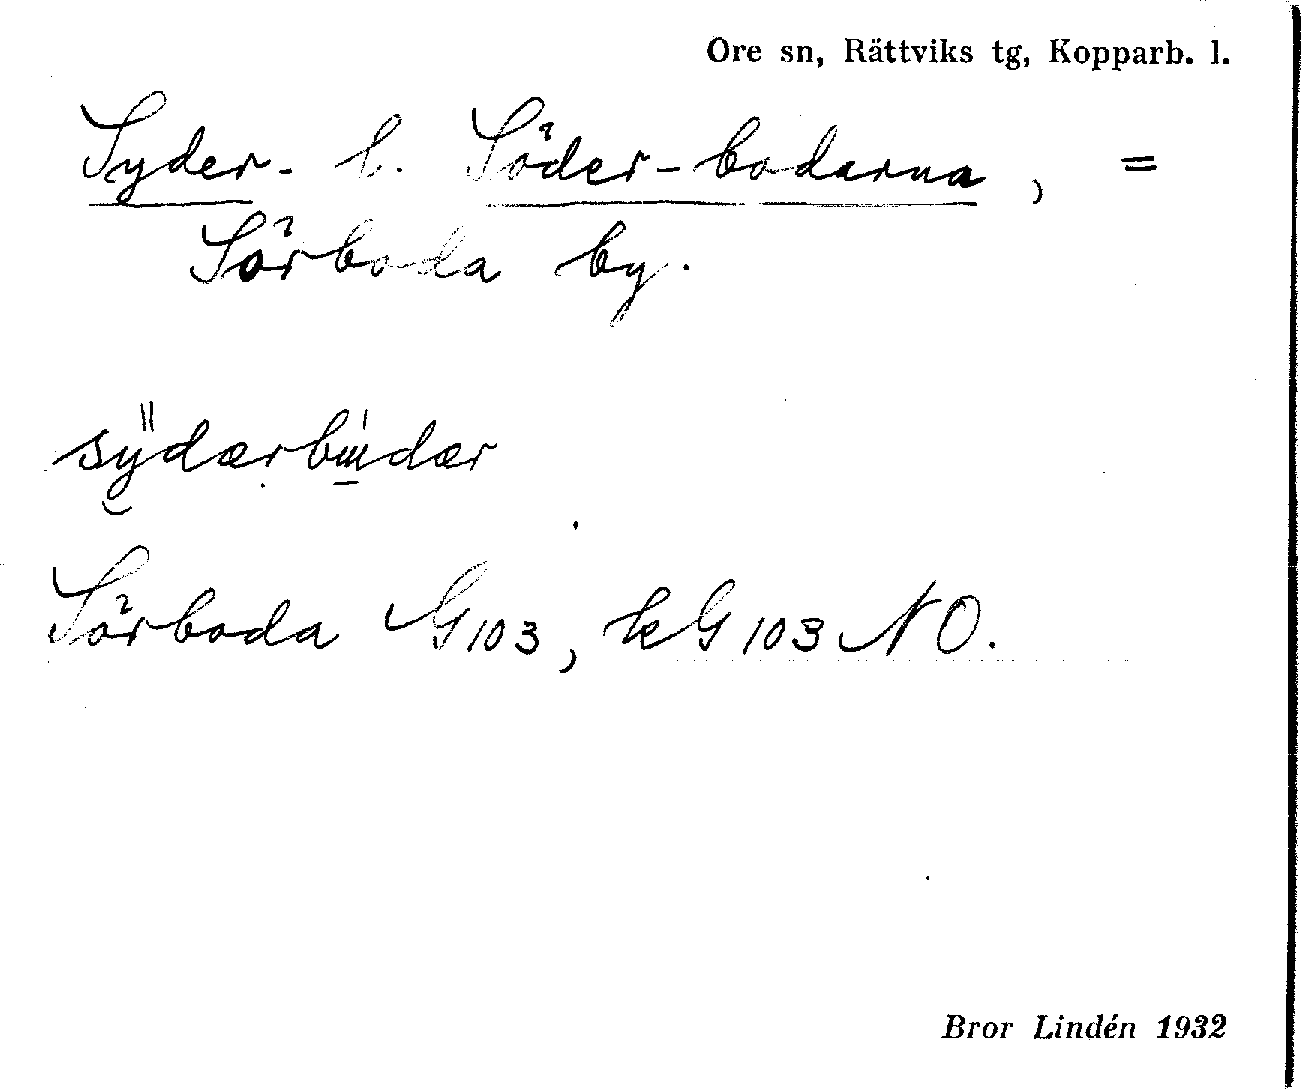 Ore sn, Rättviks tg, Kopparb. l.
Syder- l. Söder-bodarna, =
Sörboda by.
sÿdærbu̲dær
Sörboda G 103, k G 103 NO.
Bror Lindén 1932